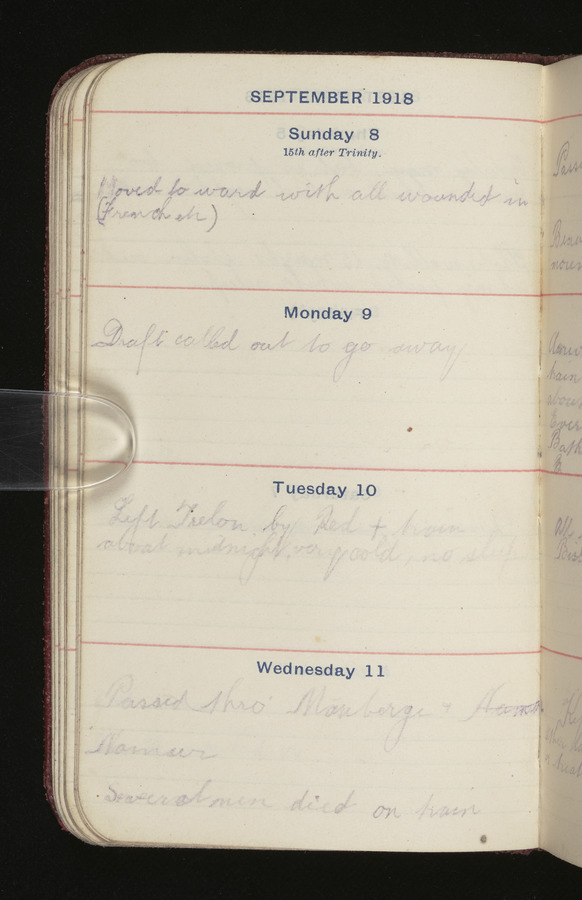 SEPTEMBER 1918
Sunday 8
15th after Trinity.
Moved to ward with all wounded in
(French etc)
Monday 9
Draft called out to go away
Tuesday 10
Left Trelon by Red + train
about midnight, very cold, no sleep
Wednesday 11
Passed thro' Mauberge +
Namur
Several men died on train